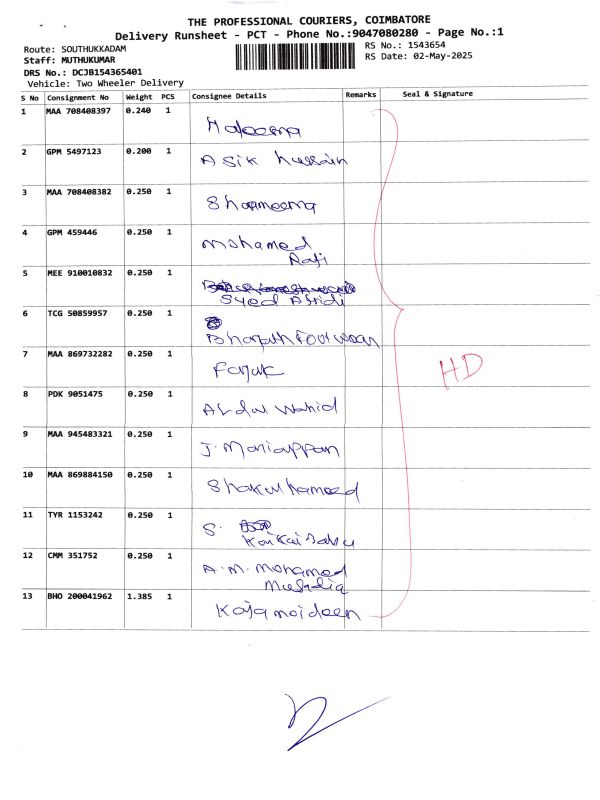 THE PROFESSIONAL COURIERS, COIMBATORE
Delivery Runsheet - PCT - Phone No.:9047080280 - Page No.:1
Route: SOUTHUKKADAM
RS No.: 1543654
Staff: MUTHUKUMAR
RS Date: 02-May-2025
DRS No.: DCJB154365401
Vehicle: Two Wheeler Delivery
S No Consignment No Weight PCS Consignee Details Remarks Seal & Signature
1 MAA 708408397 0.240 1
Haleema
2 GPM 5497123 0.200 1
Asik Hussain
3 MAA 708408382 0.250 1
Sharmeema
4 GPM 459446 0.250 1
Mohamed
Rafi
5 MEE 910010832 0.250 1
Syed Afridi
6 TCG 50859957 0.250 1
Bharath Footwear
7 MAA 869732282 0.250 1
Faruk
HD
8 PDK 9051475 0.250 1
Abdul Wahid
9 MAA 945483321 0.250 1
J. Mariappan
10 MAA 869884150 0.250 1
Shakul hameed
11 TYR 1153242 0.250 1
S.
12 CMM 351752 0.250 1
A.M. Mohamed
13 BHO 200041962 1.385 1
Kajamoideen